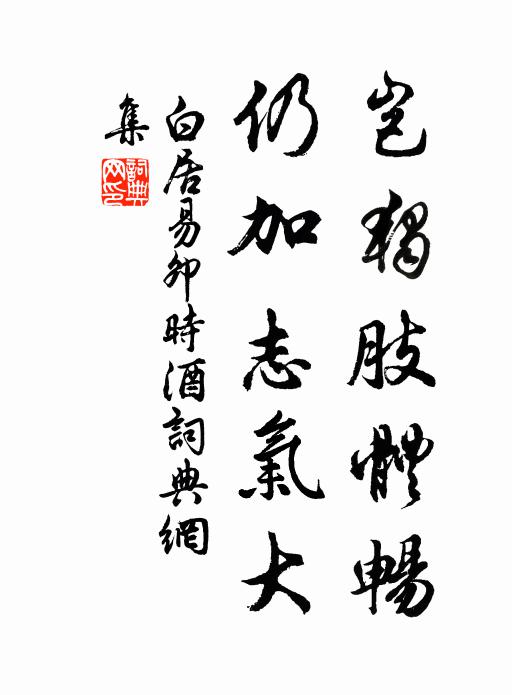 豈獨肢體暢
仍加志氣大
白居易卯時酒詞典網
集
詞典網印